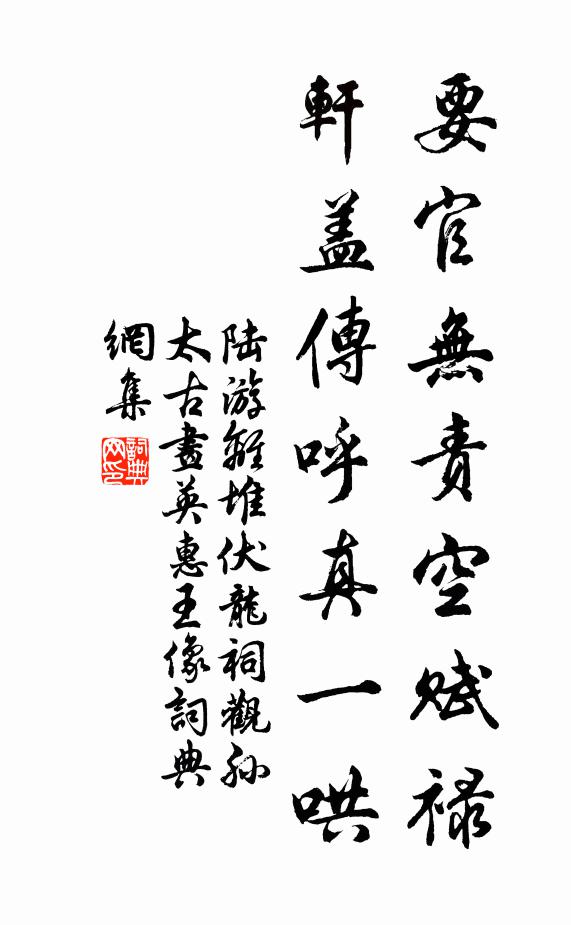 要官無責空賦祿
軒蓋傳呼真一哄
陸游離堆伏龍祠觀孫
太古畫英惠王像詞典
網集
詞典
網印